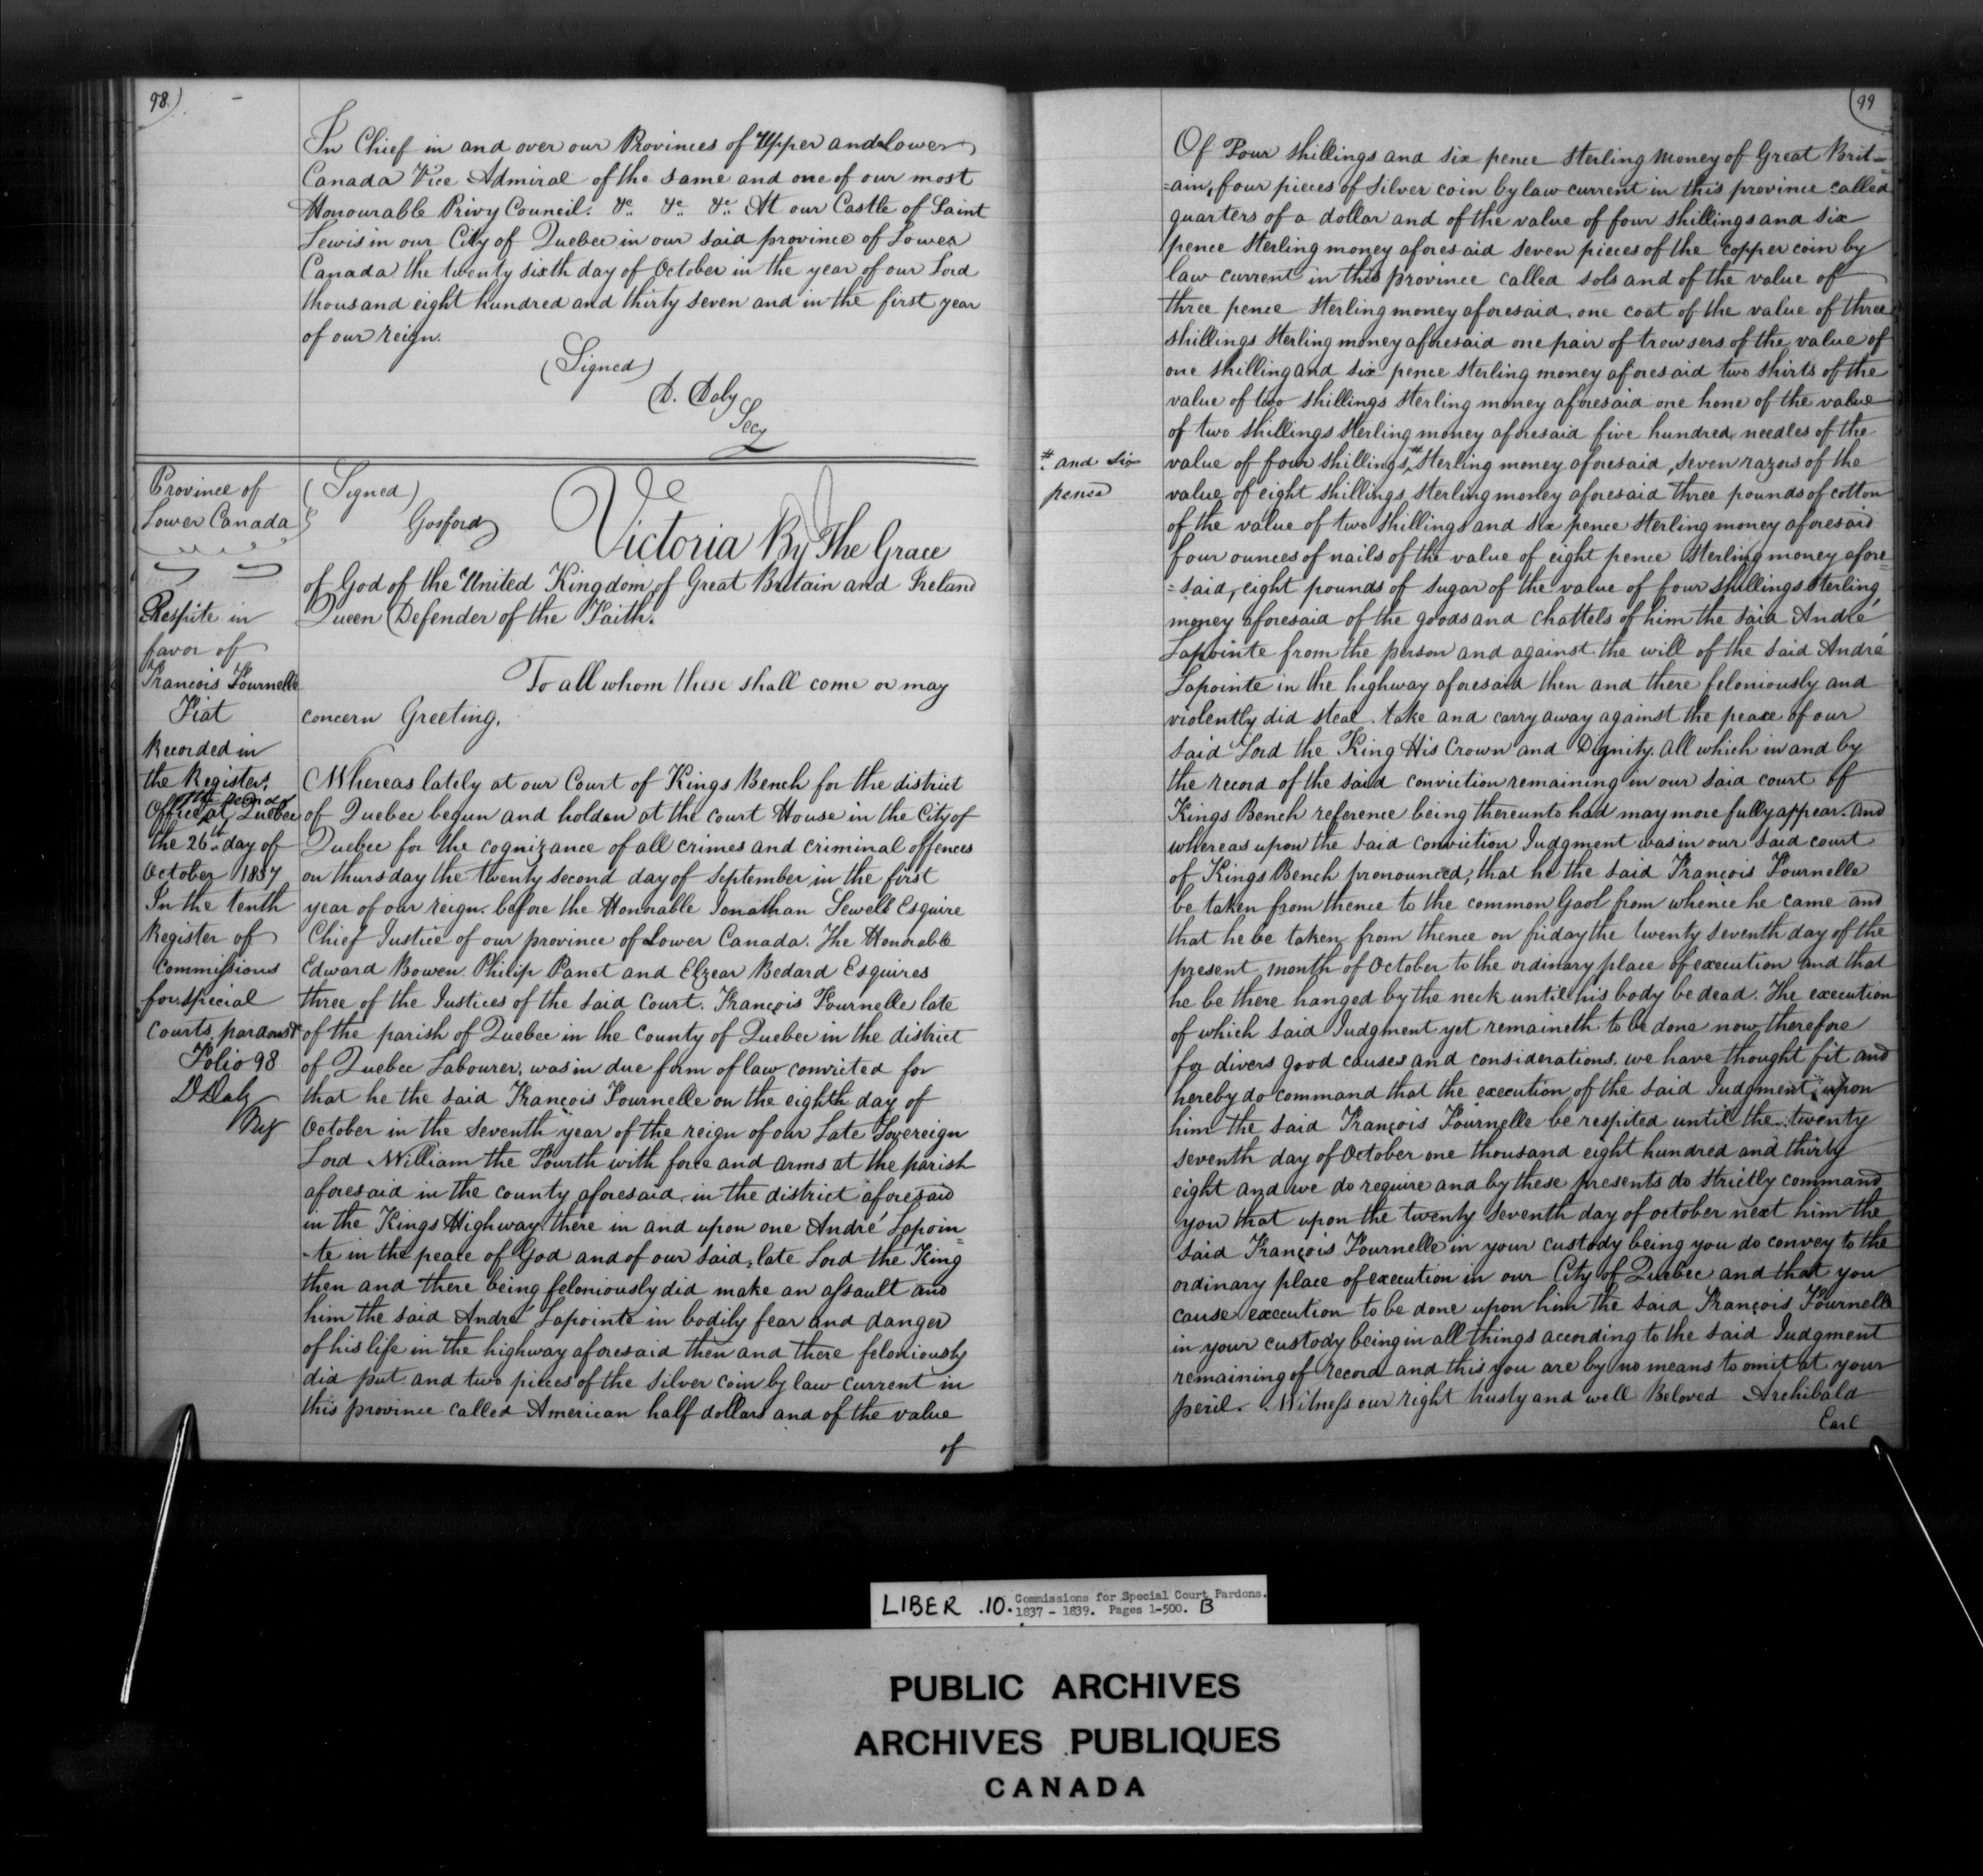 98
In Chief in and over our Provinces of Upper and Lower
Canada Vice Admiral of the same and one of our most
Honourable Privy Council. &c &c &c At our Castle of Saint
Lewis in our City of Quebec in our said province of Lower
Canada the twenty sixth day of October in the year of our Lord
thousand eight hundred and thirty seven and in the first year
of our reign.
(Signed)
D. Daly
Secy
Province of
Lower Canada
Respite in
favor of
François Fournelle
Fiat
Recorded in
the Registers
Office at Quebec
the 26th day of
October 1837
In the tenth
Register of
Commissions
for special
Courts pardons &
Folio 98
D Daly
Reg
(Signed)
Gosford
Victoria By The Grace
of God of the United Kingdom of Great Britain and Ireland
Queen Defender of the Faith.
To all whom these shall come or may
concern Greeting.
Whereas lately at our Court of Kings Bench for the district
of Quebec begun and holden at the court House in the City of
Quebec for the cognizance of all crimes and criminal offences
on thursday the twenty second day of September in the first
year of our reign. before the Honorable Jonathan Sewell Esquire
Chief Justice of our province of Lower Canada. The Honorable
Edward Bowen. Philip Panet and Elzear Bedard Esquires
three of the Justices of the said Court. François Fournelle late
of the parish of Quebec in the County of Quebec in the district
of Quebec Labourer, was in due form of law convicted for
that he the said François Fournelle on the eighth day of
October in the seventh year of the reign of our Late Sovereign
Lord William the Fourth with force and arms at the parish
aforesaid in the county aforesaid in the district aforesaid
in the Kings Highway there in and upon one André Lapoin=
-te in the peace of God and of our said, late Lord the King
then and there being feloniously did make an assault and
him the said André Lapointe in bodily fear and danger
of his life in the highway aforesaid then and there feloniously
did put and two pieces of the silver coin by law current in
this province called American half dollars and of the value
of
99
Of Four shillings and six pence sterling money of Great Brit=
=ain, four pieces of silver coin by law current in this province called
quarters of a dollar and of the value of four shillings and six
pence sterling money aforesaid seven pieces of the copper coin by
law current in this province called sols and of the value of
three pence sterling money aforesaid. one coat of the value of three
shillings sterling money aforesaid one pair of trowsers of the value of
one shilling and six pence sterling money aforesaid two shirts of the
value of two shillings sterling money aforesaid one hone of the value
of two shillings sterling money aforesaid five hundred needles of the
# and six
pence
value of four shillings # sterling money aforesaid, seven razors of the
value of eight shillings sterling money aforesaid three pounds of cotton
of the value of two shillings and six pence sterling money aforesaid
four ounces of nails of the value of eight pence sterling money afore=
=said, eight pounds of sugar of the value of four shillings sterling
money aforesaid of the goods and chattels of him the said André
Lapointe from the person and against the will of the said André
Lapointe in the highway aforesaid then and there feloniously and
violently did steal take and carry away against the peace of our
said Lord the King His Crown and Dignity. all which in and by
the record of the said conviction remaining in our said court of
Kings Bench reference being thereunto had may more fully appear. and
whereas upon the said conviction Judgment was in our said court
of Kings Bench pronounced, that he the said François Fournelle
be taken from thence to the common Gaol from whence he came and
that he be taken from thence on friday the twenty seventh day of the
present month of October to the ordinary place of execution and that
he be there hanged by the neck until his body be dead. The execution
of which said Judgment yet remaineth to be done now therefore
for divers good causes and considerations. we have thought fit and
hereby do command that the execution of the said Judgment upon
him the said François Fournelle be respited until the twenty
seventh day of October one thousand eight hundred and thirty
eight and we do require and by these presents do strictly command
you that upon the twenty seventh day of october next him the
said François Fournelle in your custody being you do convey to the
ordinary place of execution in our City of Quebec and that you
cause execution to be done upon him the said François Fournelle
in your custody being in all things according to the said Judgment
remaining of record and this you are by no means to omit at your
peril. Witness our right trusty and well Beloved Archibald
Earl
LIBER .10. Commissions for Special Court Pardons.
1837 - 1839. Pages 1-500. B
PUBLIC ARCHIVES
ARCHIVES PUBLIQUES
CANADA